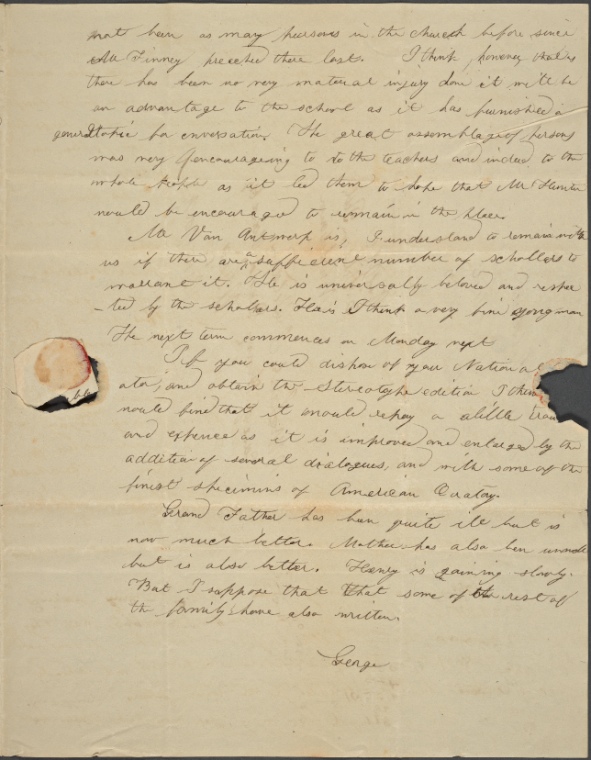 not been as may persons in the church before since
Mr Finney preached there last. I think however that as
there has been no very material injury done it will be
an advantage to the school as it has furnished a
general topic for conversation. The great assemblage of persons
was very encourageing to to the teachers and indeed to the
whole people as it led them to hope that Mr
would be encouraged to remain in the place.
Mr Van Antwerp is, I understand to remain with
us if there are a sufficient number of schollers to
warrant it. He is universally beloved and respec
-ted by the scholars. He is I think a very fine yong man
The next term commences on Monday next
If you could dispose of your National
ator, and obtain the Stereotype edition I think
would find that it would repay a alittle
and expence as it is improved and enlarged by the
addition of several dialogues, and with some of the
finest specimins of American Oratory.
Grand Father has been quite ill but is
now much better. Mother has also ben unwell
but is also better. Henry is gaining slowly.
But I suppose that that some of the rest of
the family have also written.
George